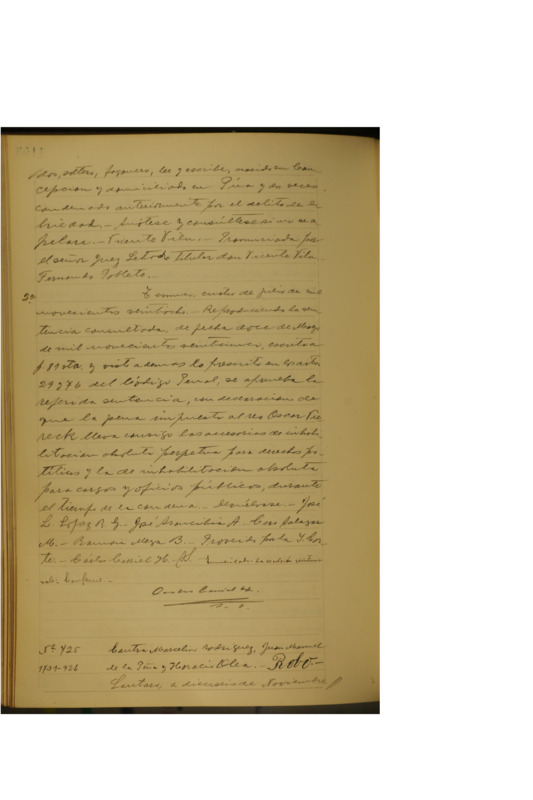 dos, soltero, fogonero, lee y escribe, nacido en Con
cepcion y domiciliado en Púa y dos veces
condenado anteriormente por el delito de e
briedad.- Anótese y consúltese si no se a
pelare.- Vicente Vila.- Pronunciada por
el señor Juez Letrado titular don Vicente Vila.
Fernando Poblete.-
2ª Temuco, cuatro de julio de mil
novecientos veintiocho.- Reproduciendo la sen
tencia consultada, de fecha doce de Mayo
de mil novecientos, escrita a
f 81 vta, y visto ademas lo prescrito en
29 y 76 del Código Penal, se aprueba la
referida sentencia, con declaracion de
que la pena impuesta al reo Oscar Pie
reck lleva consigo las accesorias de inhabi
litacion absoluta perpetua para derechos po
líticos y la de inhabilitacion absoluta
para cargos y oficios públicos, durante
el tiempo de la condena.- Devuélvase.- José
L. Lopez R. G.- José A.- Salazar
M.- Ramón Meza B.- Proveido por la I. Cor
te.- Cárlos H.-
Conforme.-
Nº 425 Contra Marcelino Rodriguez, Juan Manuel
1931-426 de la Peña y Horacio Olea.- Robo.-
Lautaro, a dieciseis de Noviembre